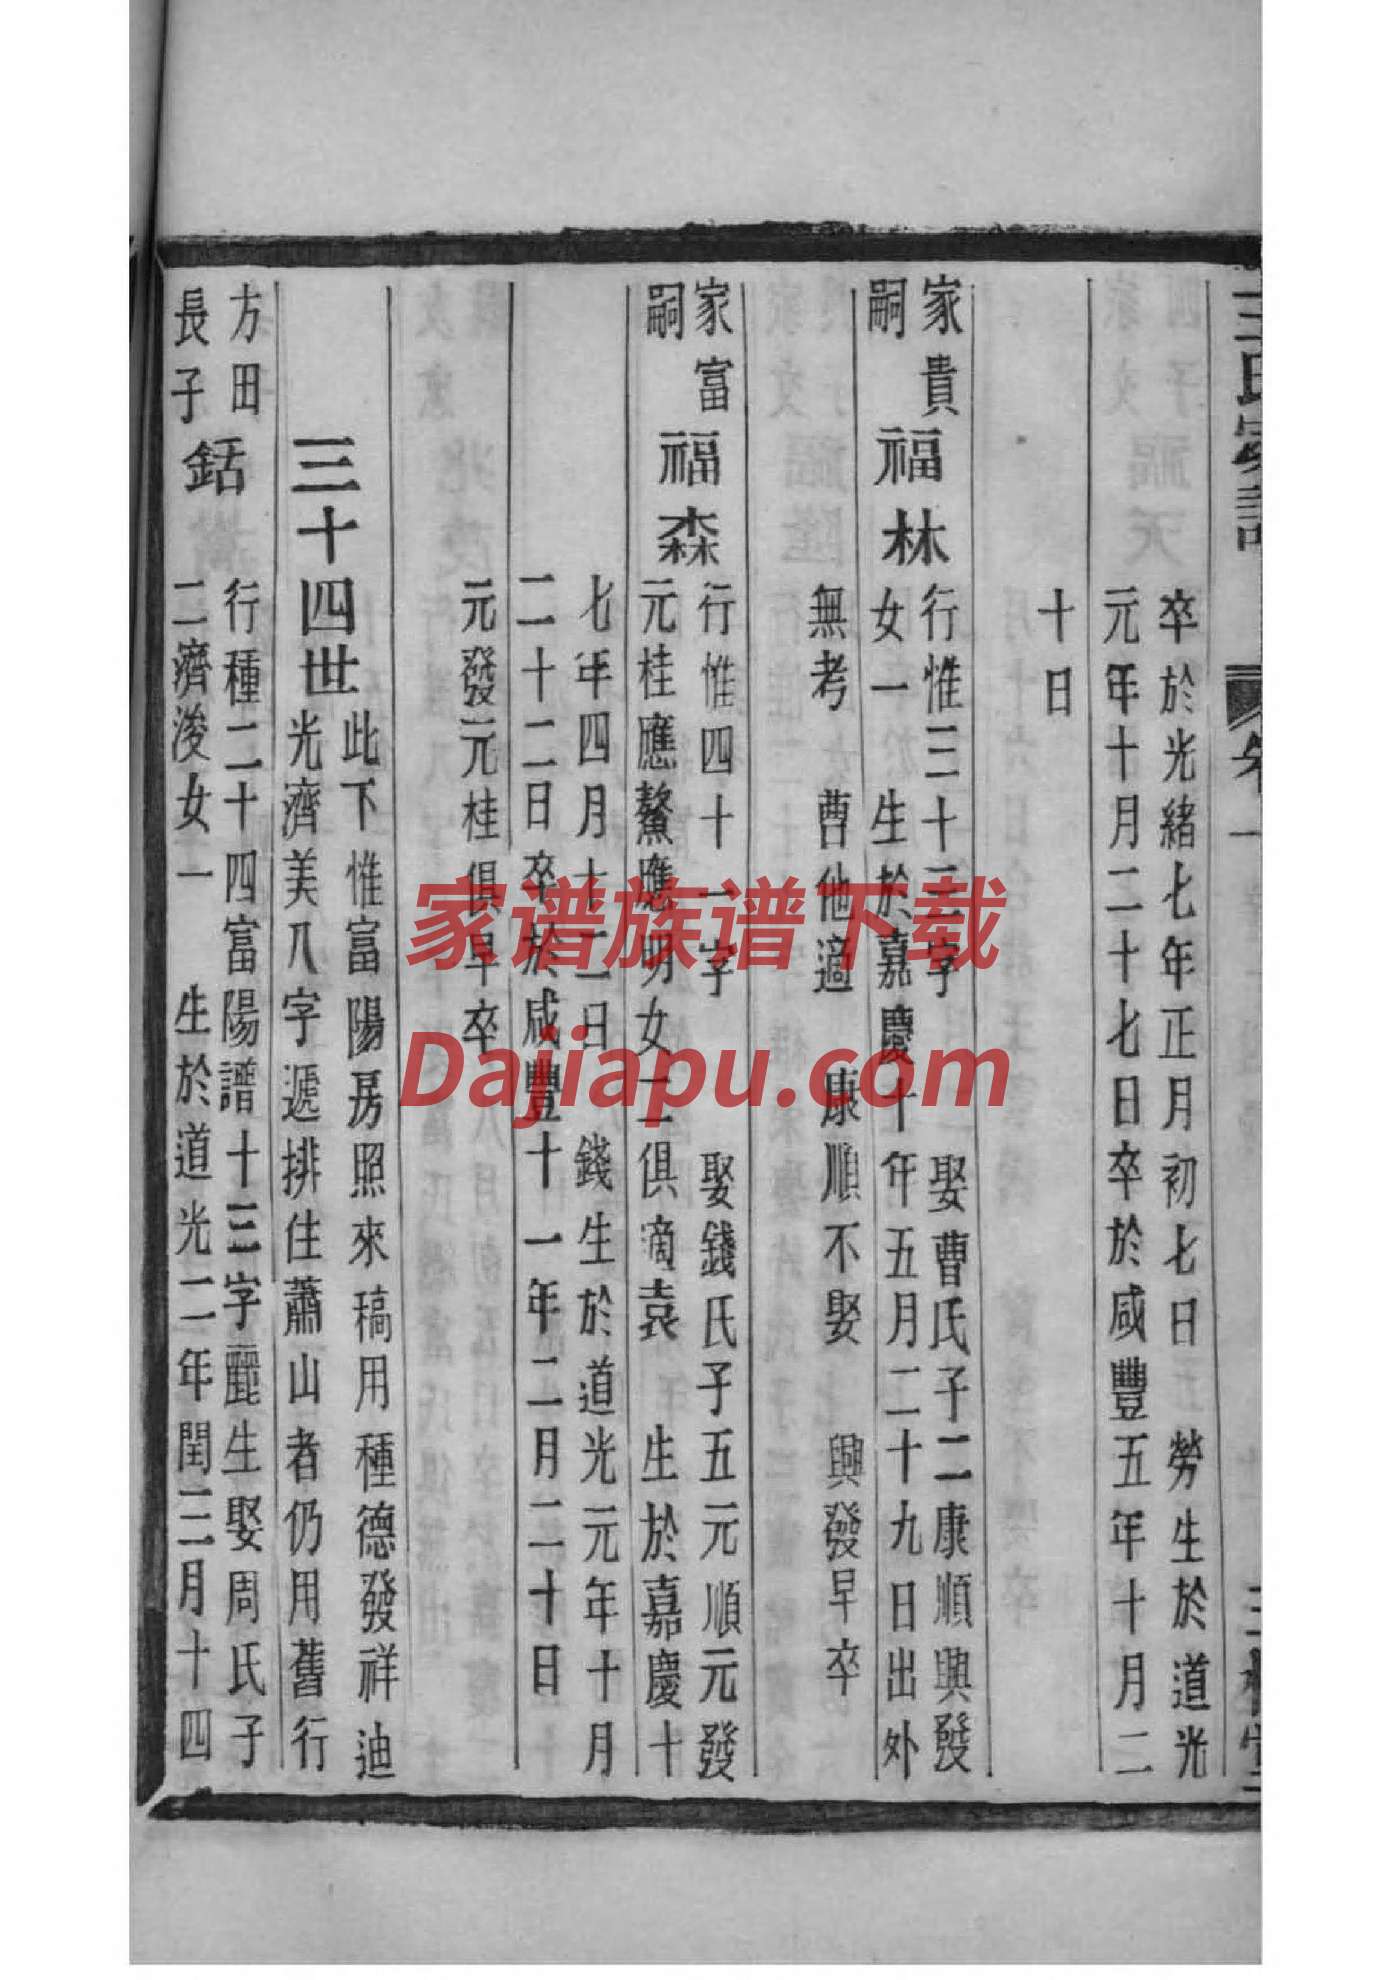 王氏家譜
卷一
卒於光緒七年正月初七日 勞生於道光
元年十月二十七日卒於咸豐五年十月二
十日
家貴嗣 福林 行惟三十三字 娶曹氏子二康順興發
女一 生於嘉慶十年五月二十九日出外
無考 曹他適 康順不娶 興發早卒
家富嗣 福森 行惟四十一字 娶錢氏子五元順元發
元桂應鰲應明女二俱滴袁 生於嘉慶十
七年四月十二日 錢生於道光元年十月
二十二日卒於咸豐十一年二月二十日
元發元桂俱早卒
三十四世 此下惟富陽房照來稿用種德發祥迪
光濟美八字遞排住蕭山者仍用舊行
方田長子 銛 行種二十四富陽譜十三字麗生娶周氏子
二濟浚女一 生於道光二年閏三月十四
家谱族谱下载
Dajiapu.com